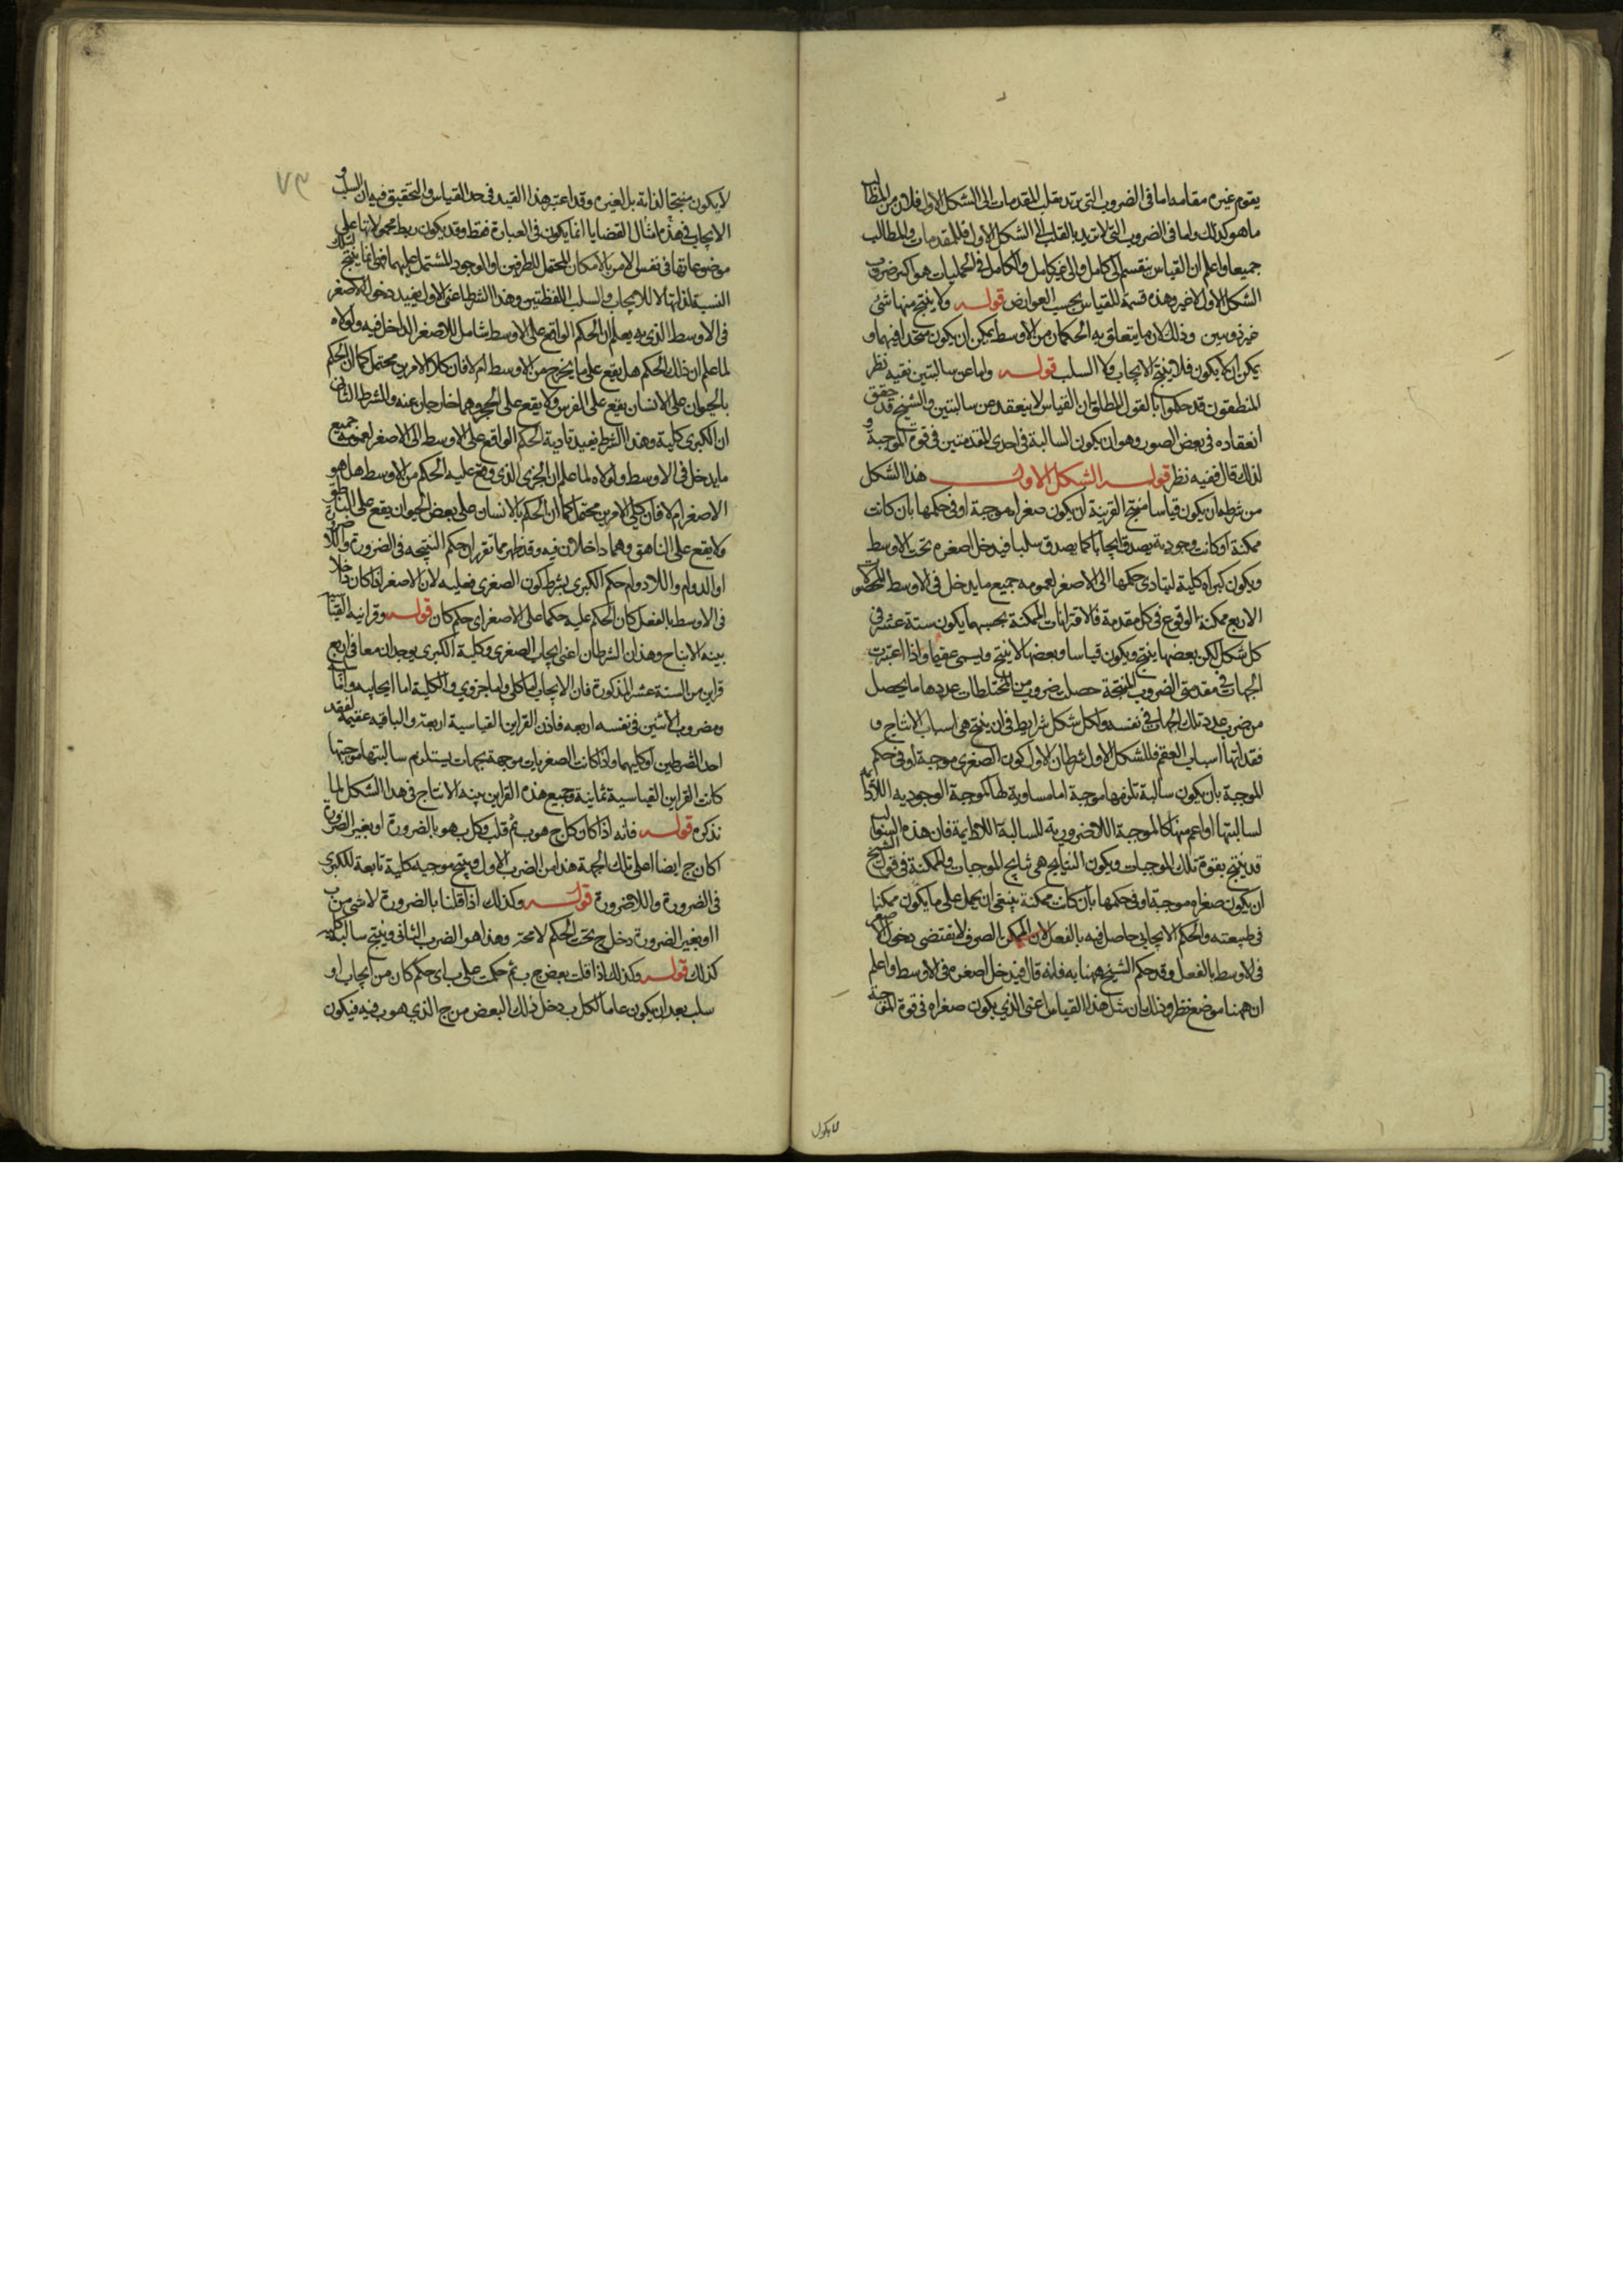 يقوم غيره مقامه اما فى الضروب التى ترتد بقلب المقدمات الى الشكل الاول فلان من المطالب
ما هو كذلك واما فى الضروب التى لا ترتد بالقلب الى الشكل الاول فللمقدمات والمطالب
جميعا واعلم ان القياس ينقسم الى كامل والى غير كامل والكامل فى الحمليات هو اكثر ضروب
الشكل الاول لا غير وهذه قسمة للقياس بحسب العوارض قوله ولا ينتج منها شئ
عن جزئيتين وذلك لان ما يتعلق به الحكمان من الاوسط يمكن ان يكون متحدا فيهما و
يمكن ان لا يكون فلا ينتج الايجاب ولا السلب قوله واما عن سالبتين ففيه نظر
المنطقيون قد حكموا بالقول المطلق ان القياس لا ينعقد عن سالبتين والشيخ قد حقق
انعقاده فى بعض الصور وهو ان يكون السالبة فى احدى المقدمتين فى قوة الموجبة و
لذلك قال ففيه نظر قوله الشكل الاول هذا الشكل
من شرطه ان يكون قياسا منتج القرينة ان يكون صغراه موجبة او فى حكمها بان كانت
ممكنة او كانت وجودية يصدق ايجابا كما يصدق سلبا فيدخل اصغره تحت الاوسط
ويكون كبراه كلية ليتادى حكمها الى الاصغر لعمومه جميع ما يدخل فى الاوسط المحصورات
الاربع ممكنة الوقوع فى كل مقدمة فالاقترانات الممكنة بحسبها يكون ستة عشر فى
كل شكل لكن بعضها ينتج ويكون قياسا وبعضها لا ينتج ويسمى عقيما واذا اعتبرت
الجهات فى مقدمتى الضروب المنتجة حصلت ضروب من المختلطات عددها ما يحصل
من ضرب عدد تلك الجهات فى نفسه ولكل شكل شرايط فى ان ينتج هى اسباب الانتاج و
فقدانها اسباب العقم فللشكل الاول شرطان الاول كون الصغرى موجبة او فى حكم
الموجبة بان يكون سالبة تلزمها موجبة اما مساوية لها كالموجبة الوجودية اللادائمة
لسالبتها او اعم منها كالموجبة اللاضرورية للسالبة اللادائمة فان هذه السوالب
قد ينتج بقوة تلك الموجبات ويكون النتايج هى نتايج الموجبات والممكنة فى قول الشيخ
ان يكون صغراه موجبة او فى حكمها بان كانت ممكنة ينبغى ان يحمل على ما يكون ممكنا
فى طبيعته والحكم الايجابى حاصل فيه بالفعل لان الممكن الصرف لا يقتضى دخول الاصغر
فى الاوسط بالفعل وقد حكم الشيخ ههنا به فانه قال فيدخل اصغره فى الاوسط واعلم
ان ههنا موضع نظر وذلك ان مثل هذا القياس اعنى الذى يكون صغراه فى قوة المنتجة
لا يكون
٧٣
لا يكون منتجا لذاته بل لغيره وقد اعتبر هذا القيد فى حد القياس والتحقيق فيه ان السلب و
الايجاب فى هذه امثال القضايا انما يكون فى العبارة فقط وقد يكون ربط محمولاتها على
موضوعاتها فى نفس الامر بالامكان المحتمل للطرفين او الوجود المشتمل عليهما فهى انما ينتج لتلك
النسبة لذاتها لا للايجاب والسلب اللفظيتين وهذا الشرط اعنى الاول يفيد دخول الاصغر
فى الاوسط الذى به يعلم ان الحكم الواقع على الاوسط شامل للاصغر الداخل فيه ولولاه
لما علم ان ذلك الحكم هل يقع على ما يخرج من الاوسط ام لا فان كلا الامرين محتمل كما ان الحكم
بالحيوان على الانسان يقع على الفرس ولا يقع على الحجر وهما خارجان عنه والشرط الثانى
ان الكبرى كلية وهذا الشرط يفيد تادية الحكم الواقع على الاوسط الى الاصغر لعمومه جميع
ما يدخل فى الاوسط ولولاه لما علم ان الجزئى الذى وقع عليه الحكم من الاوسط هل هو
الاصغر ام لا فان كلى الامرين محتمل كما ان الحكم بالانسان على بعض الحيوان يقع على الناطق
ولا يقع على الناهق وهما داخلان فيه وقد ظهر مما تقرر ان حكم النتيجه فى الضرورة واللاضرورة
او الدوام واللادوام حكم الكبرى بشرط كون الصغرى فعليه لان الاصغر اذا كان داخلا
فى الاوسط بالفعل كان الحكم عليه حكما على الاصغر اى حكم كان قوله وقراينه القياسية
بينه الانتاج وهذان الشرطان اعنى ايجاب الصغرى وكلية الكبرى يوجدان معا فى اربع
قراين من الستة عشر المذكورة فان الايجاب اما كلى واما جزوى والكلية اما ايجابيه واما
ومضروب الاثنين فى نفسه اربعه فاذن القراين القياسية اربعة والباقيه عقيمة لفقد
احد الشرطين او كليهما واذا كانت الصغريات موجهة بجهات يستلزم سالبتها موجبتها
كانت القراين القياسية ثمانية وجميع هذه القراين بينه الانتاج فى هذا الشكل لما
نذكره قوله فانه اذا كان كل ج هو ب ثم قلت وكل ب هو بالضرورة او بغير الضرورة
ا كان ج ايضا ا على تلك الجهة هذا من الضرب الاول وينتج موجبة كلية تابعة للكبرى
فى الضرورة واللاضرورة قوله وكذلك اذا قلنا بالضرورة لا شئ من ب
ا او بغير الضرورة دخل ج تحت الحكم لا محة وهذا هو الضرب الثانى وينتج سالبة كليه
كذلك قوله وكذلك اذا قلت بعض ج ب ثم حكمت على ب اى حكم كان من ايجاب او
سلب بعد ان يكون عاما لكل ب دخل ذلك البعض من ج الذى هو ب فيه فيكون